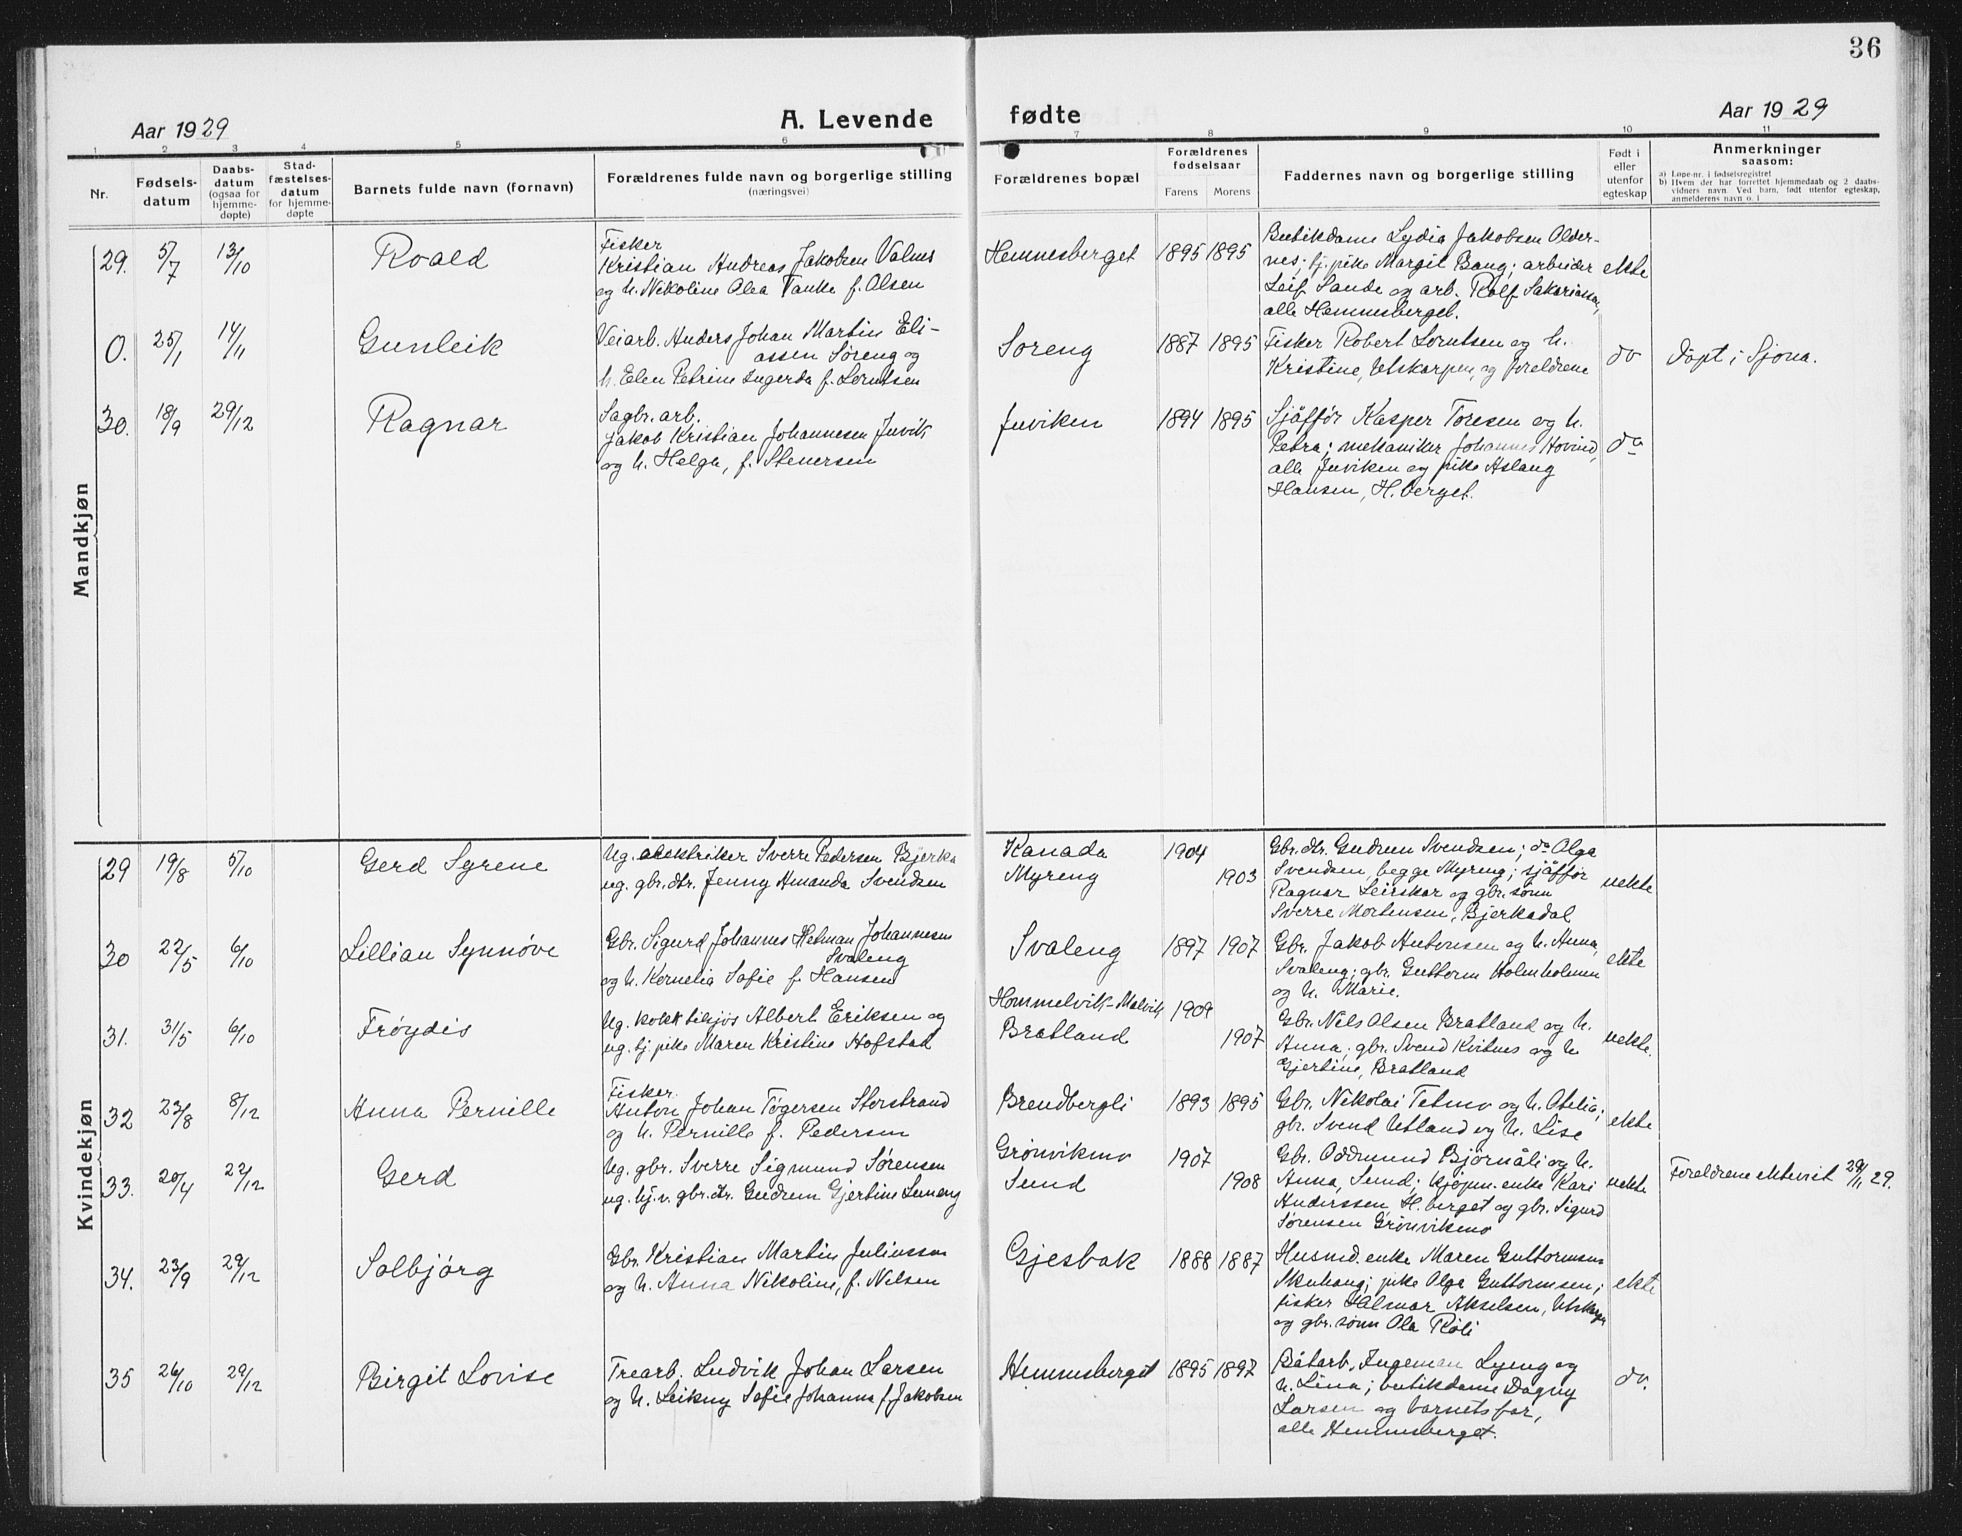 36
Aar 1929
A. Levende fødte
Aar 1929
1 2 3 4 5 6 7 8 9 10 11
Nr.
Fødselsdatum
Daabsdatum (ogsaa for hjemmedøpte)
Stadfæstelsesdatum for hjemmedøpte
Barnets fulde navn (fornavn)
Forældrenes fulde navn og borgerlige stilling (næringsvei)
Forældrenes bopæl
Forældrenes fødselsaar
Farens Morens
Faddernes navn og borgerlige stilling
Født i eller utenfor egteskap
Anmerkninger saasom:
a) Løpe-nr. i fødselsregistret
b) Hvem der har forrettet hjemmedaab og 2 daabsvidners navn. Ved barn, født utenfor egteskap, anmelderens navn o. l.
Mandkjøn
29. 5/7 13/10 Roald
Fisker
Kristian Andreas Jakobsen Valnes
og h. Nikoline Alea Tanke f. Olsen
Hemnesberget 1895 1895
Butikdame Lydia Jakobsen Alder-
nes; tj. pike Margit Bang; arbeider
Leif Sande og arb. Rolf Sakariassen,
alle Hemnesberget.
ekte
0. 25/1 14/11 Gunleik
Veiarb. Anders Johan Martin Eli-
assen Søreng og
h. Elen Petrine Ingerda f. Lorntsen
Soreng 1887 1895
Fisker Robert Lorntsen og h.
Kristine, Utskarpen, og foreldrene
do
Døpt i Sjona.
30. 18/9 29/12 Ragnar
Sagbr. arb.
Jakob Kristian Johannesen Juvik
og h. Helga, f. Stenersen
Juviken 1894 1895
Sjåffør Kasper Toresen og h.
Petra; mekaniker Johannes Hovind,
alle Juviken og pike Aslaug
Hansen, H. berget.
do
Kvindekjøn
29 19/8 5/10 Gerd Syrene
Ug. elektriker Sverre Pedersen Bjerka
ug. gbr. dtr. Jenny Amanda Svendsen
Kanada 1904
Myreng 1903
Gbr. dtr. Gudrun Svendsen; do Olga
Svendsen, begge Myreng; sjåffør
Ragnar Leirskar og gbr. sønn
Sverre Mortensen, Bjerkadal
uekte
30 22/5 6/10 Lillian Synnøve
Gbr. Sigurd Johannes Helman Johannesen
Svaleng
og h. Kornelia Sofie f. Hansen
Svaleng 1897 1907
Gbr. Jakob Antonsen og h. Anna,
Svaleng; gbr. Guttorm Holmholmen
og h. Marie.
ekte
31. 31/5 6/10 Frøydis
Ug. kokk tilsjøs Albert Eriksen og
ug. tj. pike Maren Kristine Hofstad
Hommelvik-Malvik 1909
Bratland 1907
Gbr. Nils Olsen Bratland og h.
Anna; gbr. Svend Kvitnes og h
Gjertine, Bratland
uekte.
32 23/8 8/12 Anna Pernille
Fisker
Anton Johan Tøgersen Storstrand
og h. Pernille f. Pedersen
Brendbergli 1893 1895
Gbr. Nikolai Tetmo og h. Otelia;
gbr. Svend Utland og h. Lise
ekte
33. 20/4 22/12 Gerd
Ug. gbr. Sverre Sigmund Sørensen
ug. hj. v. gbr. dtr. Gudrun Gjertine Luneng
Grønvikmo 1907
Sund 1908
Gbr. Oddmund Bjørnåli og h.
Anna, Sund; kjøpm. enke Kari
Anderssen H. berget og gbr. Sigurd
Sørensen Grønvikmo
uekte
Foreldrene ekteviet 29/11 29.
34. 23/9 29/12 Solbjørg
Gbr. Kristian Martin Juliussen
og h. Anna Nikoline, f. Nilsen
Gjesbak 1888 1887
Husmd. enke Maren Guttormsen
Skuhaug; pike Olga Guttormsen;
fisker Hilmar Akselsen, Utskarpen
og gbr. sønn Ola Røli
ekte
35 26/10 29/12 Birgit Lovise
Trearb. Ludvik Johan Larsen
og h. Leikny Sofie Johanna f. Jakobsen
Hemnesberget 1895 1897
Båtarb. Ingeman Lyeng og
h. Lina; butikdame Dagny
Larsen og barnets far,
alle Hemnesberget.
do.